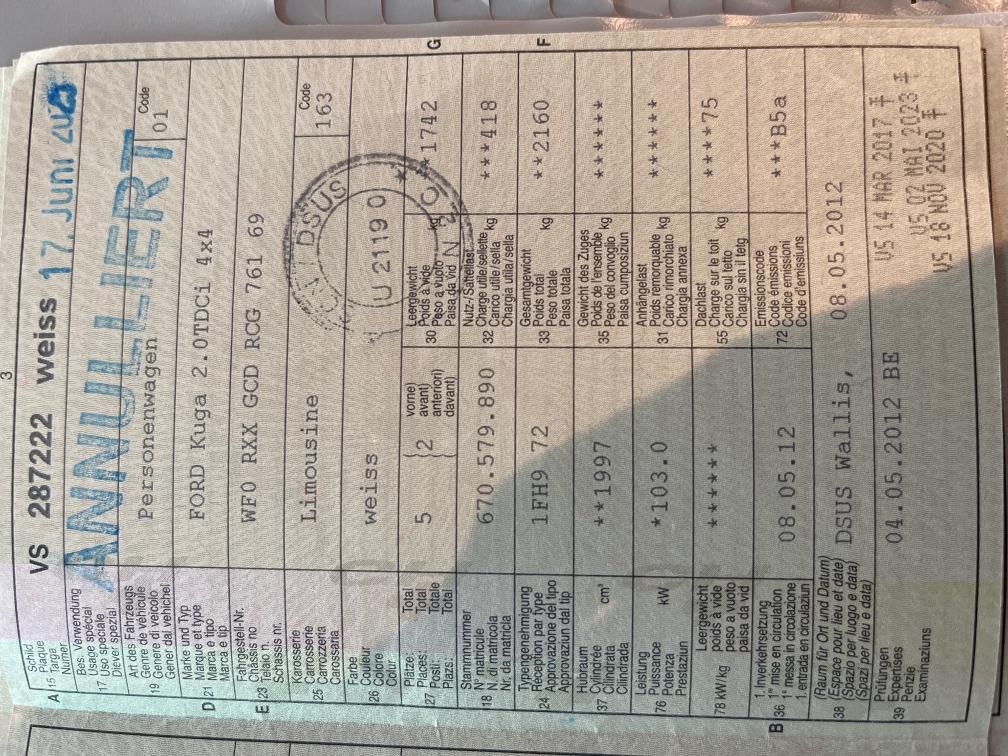 3
A 15 Schild Plaque Targa Numer VS 287222 weiss 17. Juni 2025
17 Bes. Verwendung
Usage spécial
Uso speciale
Diever spezial
ANNULLIERT
19 Art des Fahrzeugs
Genre de véhicule
Genere di veicolo
Gener dal vehichel
Personenwagen
Code
01
D 21 Marke und Typ
Marque et type
Marca e tipo
Marca e tip
FORD Kuga 2.0TDCi 4x4
E 23 Fahrgestell-Nr.
Châssis no
Telaio n.
Schassis nr.
WF0 RXX GCD RCG 761 69
25 Karosserie
Carrosserie
Carrozzeria
Carossaria
Limousine
Code
163
26 Farbe
Couleur
Colore
Colur
weiss
DSUS
U 2119 0
27 Plätze: Total
Places: Total
Posti: Totale
Plazs: Total
5
2
vorne)
avant)
anteriori)
davant)
30 Leergewicht
Poids à vide
Peso a vuoto
Paisa da vid
kg
**1742
G
18 Stammnummer
N° matricule
N. di matricola
Nr. da matricla
670.579.890
32 Nutz-/Sattellast
Charge utile/sellette
Carico utile/sella
Chargia utila/sella
kg
***418
24 Typengenehmigung
Réception par type
Approvazione del tipo
Approvaziun dal tip
1FH9 72
33 Gesamtgewicht
Poids total
Peso totale
Paisa totala
kg
**2160
F
37 Hubraum
Cylindrée
Cilindrata
Cilindrada
cm³
**1997
35 Gewicht des Zuges
Poids de l'ensemble
Peso del convoglio
Paisa cumposiziun
kg
******
76 Leistung
Puissance
Potenza
Prestaziun
kW
*103.0
31 Anhängelast
Poids remorquable
Carico rimorchiato
Chargia annexa
kg
******
78 kW/kg
Leergewicht
poids à vide
peso a vuoto
paisa da vid
******
55 Dachlast
Charge sur le toit
Carico sul tetto
Chargia sin il tetg
kg
****75
B 36 1. Inverkehrsetzung
1re mise en circulation
1a messa in circolazione
1. entrada en circulaziun
08.05.12
72 Emissionscode
Code émissions
Codice emissioni
Code d'emissiuns
***B5a
38 (Raum für Ort und Datum)
(Espace pour lieu et date)
(Spazio per luogo e data)
(Spazi per lieu e data)
DSUS Wallis, 08.05.2012
39 Prüfungen
Expertises
Perizie
Examinaziuns
04.05.2012 BE
VS 14 MAR 2017
VS 02 MAI 2023
VS 18 NOV 2020